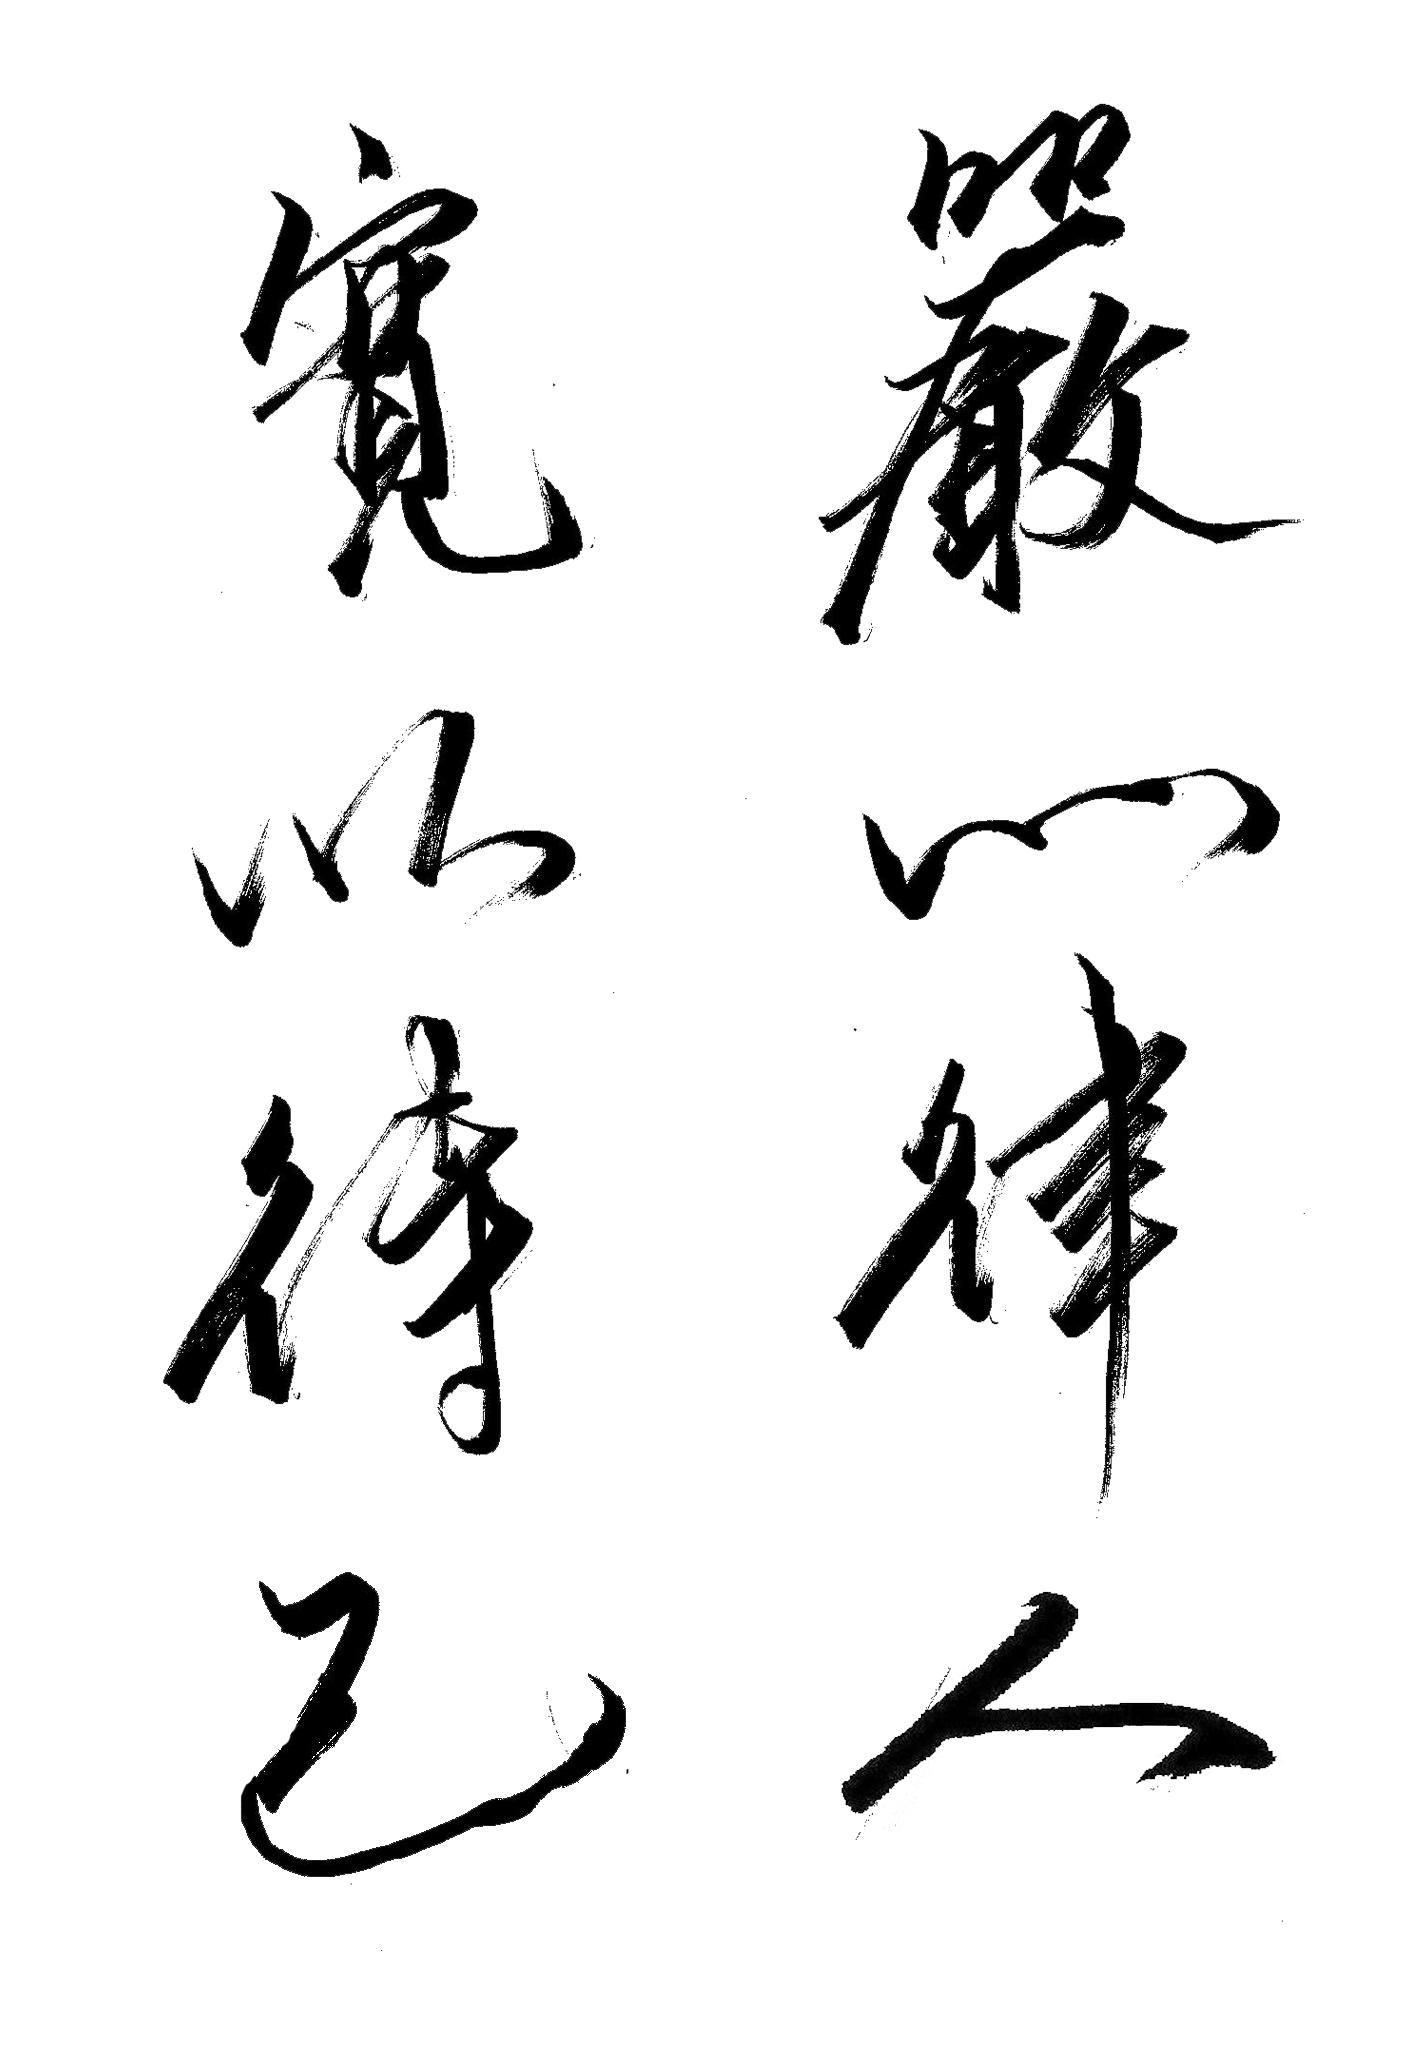 嚴以律人
寬以待己